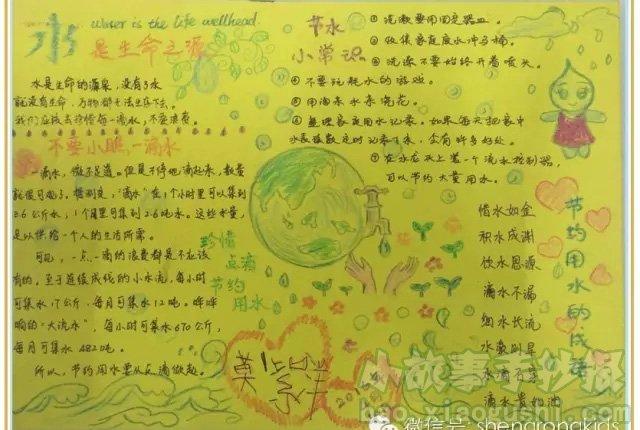 水
Water is the life wellhead.
是生命之源
水是生命的源泉，没有了水
就没有生命，万物都无法生存下去。
我们应该去珍惜每一滴水，不要浪费。
不要小瞧一滴水
一滴水，微不足道。但是不停地滴起来，数量
就很可观了。据测定，"滴水"在1个小时里可以集到
3.6公斤水，1个月里可集到2.6吨水。这些水量，
足以供给一个人的生活所需。
可见，一点一滴的浪费都是不应该
有的。至于连续成线的小水流，每小时
可集水17公斤，每月可集水12吨。哗哗
响的"大流水"，每小时可集水670公斤，
每月可集水482吨。
所以，节约用水要从点滴做起。
节水
小常识
①洗漱要用固定器皿。
②收集家庭废水冲马桶。
③洗澡不要始终开着喷头。
④不要玩耗水的游戏。
⑤用淘米水来浇花。
⑥整理家庭用水记录，如果每天把家中
水表读数定时记录下来，会有许多好处。
⑦在水龙头上装一个流水控制器，
可以节约大量用水。
珍惜
点滴
节约
用水
节约用水的成语
惜水如金
积水成渊
饮水思源
滴水不漏
细水长流
水滴石穿
滴水贵如油
小故事手抄报
bao.xiaogushi.com
微信号: shengrongkids